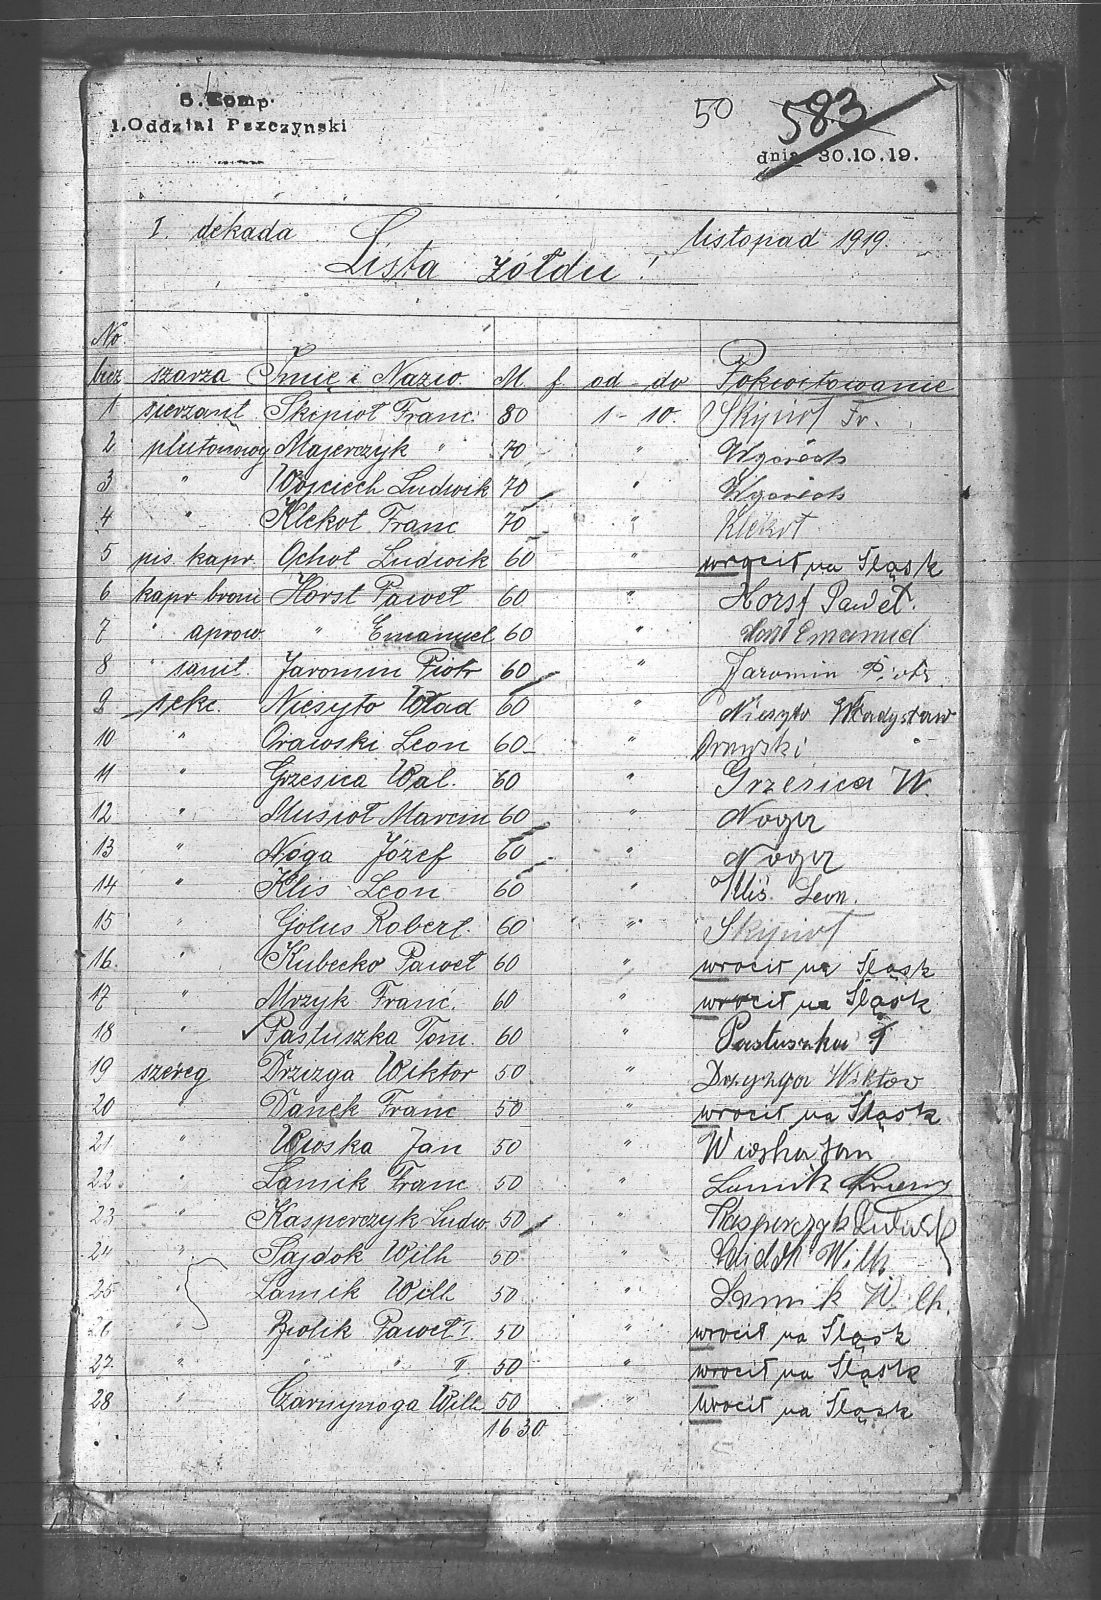 Komp.
1. Oddział Pszczynski
50
583
dnia 30.10.19.
I. dekada listopad 1919.
Lista żółdu!
No
bież szarża Imię i Nazw. M f od - do Pokwitowanie
1 sierzant Skipioł Franc. 80 1 - 10. Skipioł Fr.
2 plutonowy Majerczyk " 70 "
3 " Wojciech Ludwik 70 "
4 " Klekot Franc 70 " Klekot
5 pis. kapr. Ochot Ludwik 60 " wrocił na Śląsk
6 kapr broni Horst Paweł 60 " Horst Paweł.
7 " aprow. " Emanuel 60 " Horst Emanuel
8 " sanit. Jaromin Piotr 60 " Jaromin Piotr
9 sekc. Niesyto Wład 60 " Niesyto Władysław
10 " Orawski Leon 60 "
11 " Grzesica Wal. 60 " Grzesica W.
12 " Musioł Marcin 60 " Noga
13 " Nóga Józef 60 " Noga
14 " Kliś Leon 60 " Kliś Leon.
15 " Golus Robert. 60 " Skipioł
16. " Kubecko Paweł 60 " wrocił na Śląsk
17 " Mrzyk Franc. 60 " wrocił na Śląsk
18 " Pastuszka Tom. 60 " Pastuszka T
19 szereg Drzizga Wiktor 50 " Drzyzga Wiktor
20 " Danek Franc 50 " wrocił na Śląsk
21 " Wioska Jan 50 " Wioska Jan
22 " Lamik Franc 50 " Lamik Franz
23 " Kasperczyk Ludw. 50 " Kasperczyk Ludwik
24 " Sajdok Wilh 50 " Sajdok Wilh
25 " Lamik Wilh 50 " Lamik Wilh.
26 " Paweł I 50 " wrocił na Śląsk
27 " " " II 50 " wrocił na Śląsk
28 " Czarnynoga Wilh 50 " wrocił na Śląsk
1630